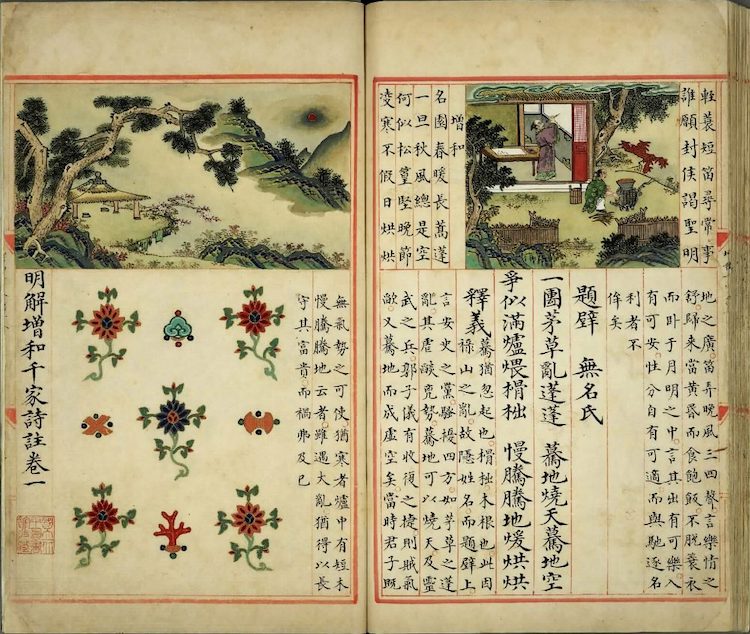 輕蓑短笛尋常事
誰願封侯謁聖明
增和
名園春暖長蒿蓬
一旦秋風總是空
何似松篁堅晚節
凌寒不假日烘烘
地之廣笛弄晚風三四聲言樂情之
舒歸來當黃昏而食飽飯不脫蓑衣
而卧于月明之中言其出有可樂入
有可安性分自有可適而與馳逐名
利者不
侔矣
題壁 無名氏
一團茅草亂蓬蓬 驀地燒天驀地空
爭似滿爐煨榾柮 慢騰騰地煖烘烘
釋義 驀猶忽起也榾柮木根也此因
祿山之亂故隱姓名而題壁上
言安史之黨騷擾四方如茅草之蓬
亂其虐燄兇勢驀地可以燒天及靈
武之兵郭子儀有收復之捷則賊氣
歇又驀地而成虛空矣當時君子既
無氣勢之可使猶寒者爐中有短木
慢騰騰地云者雖遇大亂猶得以長
守其富貴而禍弗及已
明解增和千家詩註卷一